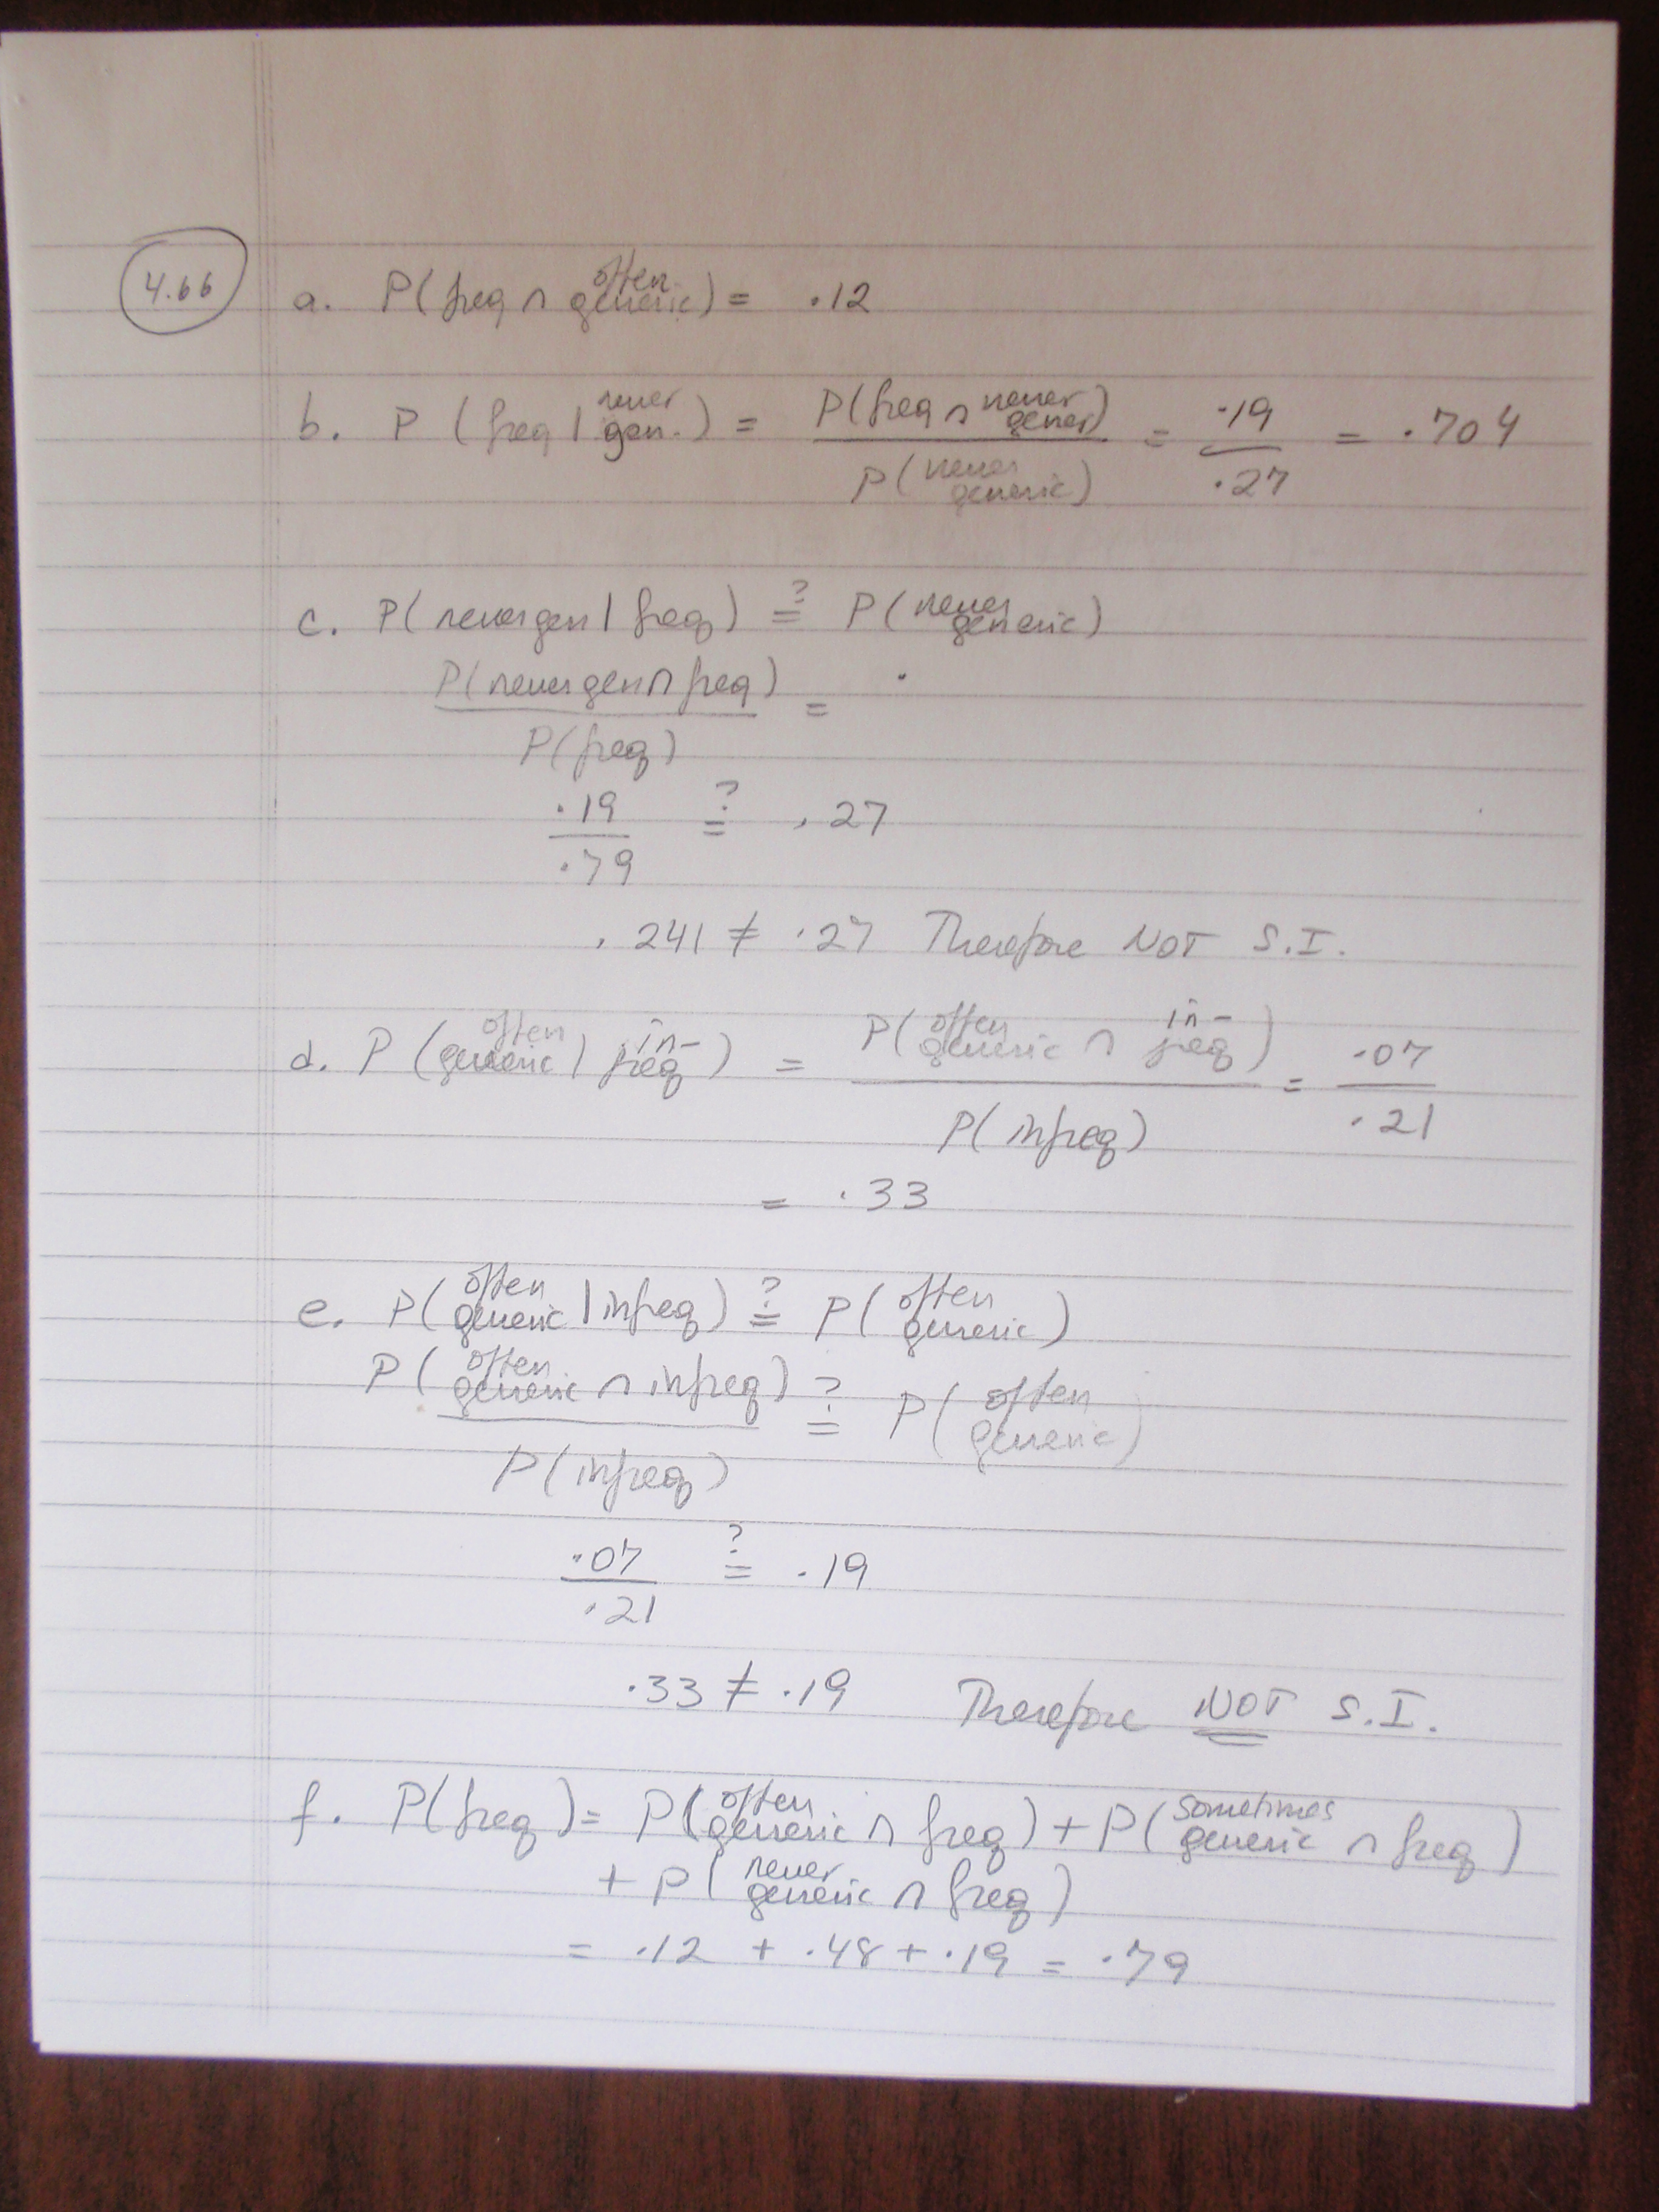 4.66
a. P(freq ∩ often generic) = .12
b. P (freq | never gen.) = P(freq ∩ never gener) / P(never generic) = .19 / .27 = .704
c. P(never gen | freq) ≟ P(never generic)
P(never gen ∩ freq) / P(freq) = .
.19 / .79 ≟ .27
.241 ≠ .27 Therefore NOT S.I.
d. P (often generic | in-freq) = P(often generic ∩ in-freq) / P(infreq) = .07 / .21
= .33
e. P(often generic | infreq) ≟ P(often generic)
P(often generic ∩ infreq) / P(infreq) ≟ P(often generic)
.07 / .21 ≟ .19
.33 ≠ .19 Therefore NOT S.I.
f. P(freq) = P(often generic ∩ freq) + P(sometimes generic ∩ freq)
+ P(never generic ∩ freq)
= .12 + .48 + .19 = .79